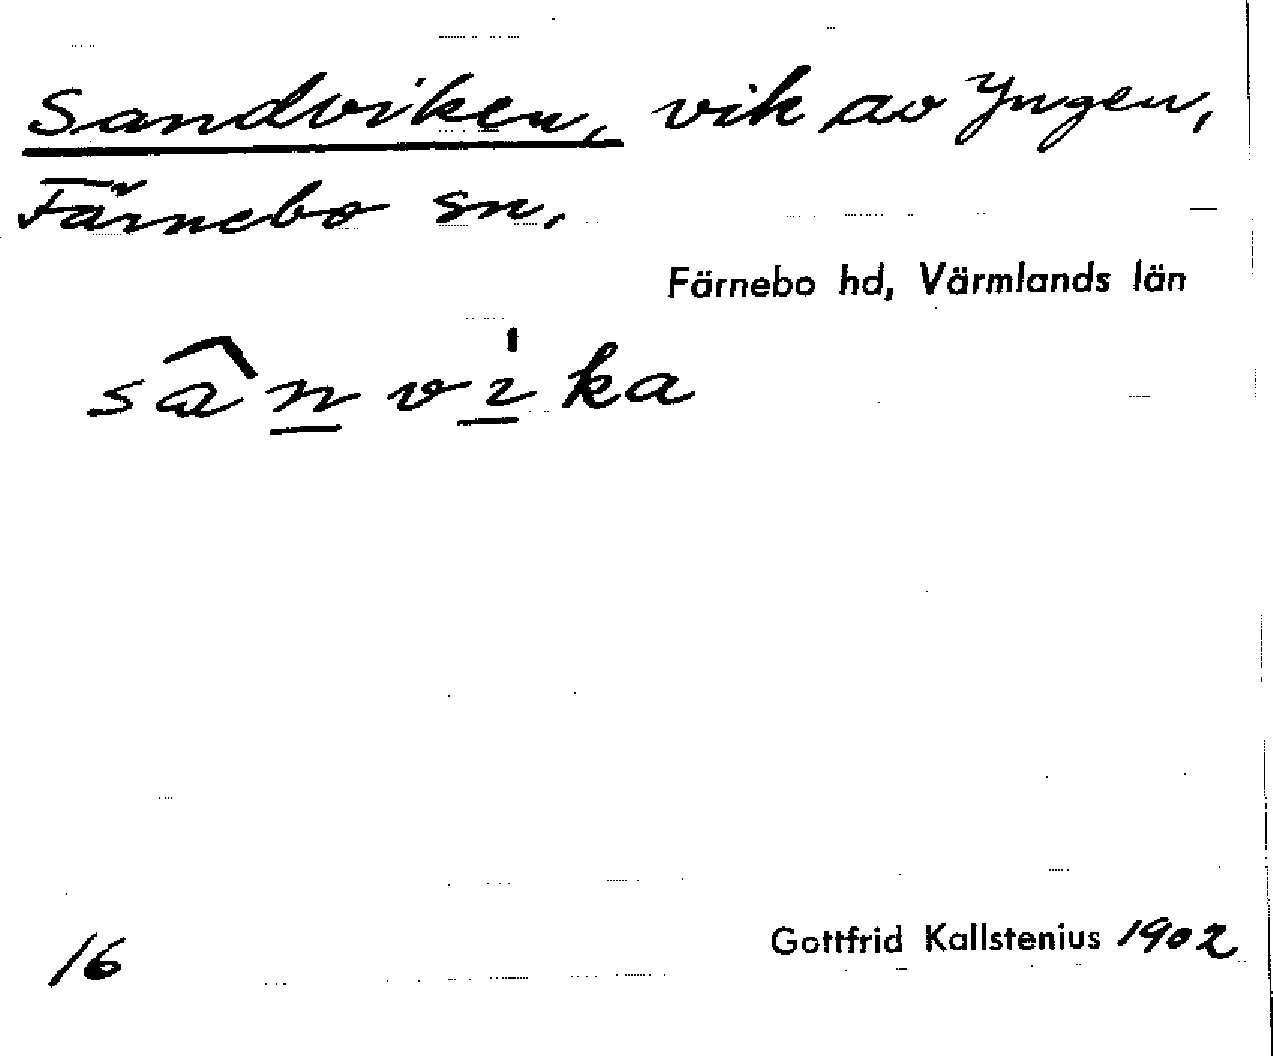 Sandviken, vik av Yngen,
Färnebo sn.
Färnebo hd, Värmlands län
sânvìka
16
Gottfrid Kallstenius 1902